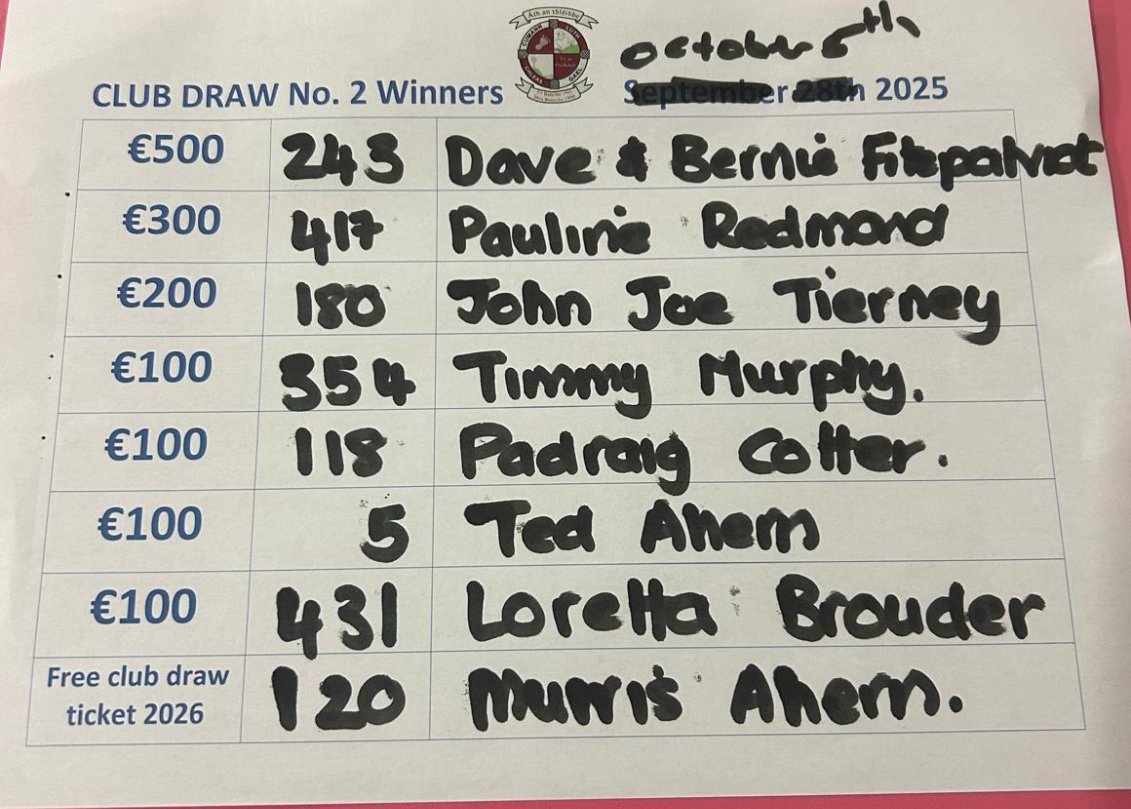 October 5th
CLUB DRAW No. 2 Winners September 28th 2025
€500 243 Dave & Bernie Fitzpatrick
€300 417 Pauline Redmond
€200 180 John Joe Tierney
€100 354 Timmy Murphy.
€100 118 Padraig Cotter.
€100 5 Ted Ahern
€100 431 Loretta Brouder
Free club draw
ticket 2026 120 Murris Ahern.